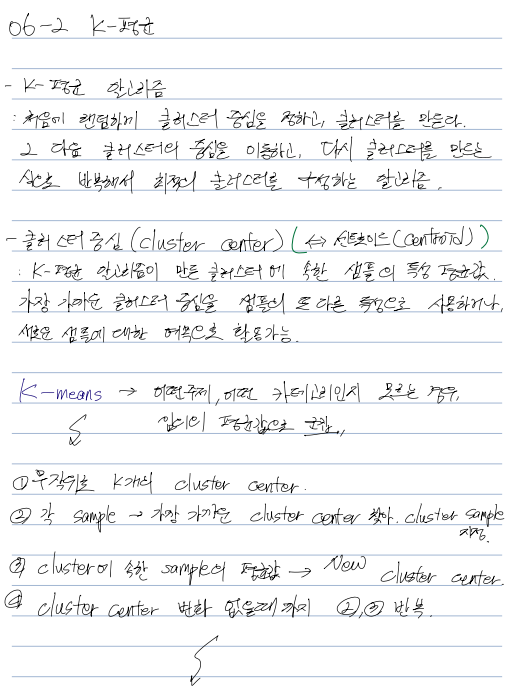 06-2 K-평균
- K-평균 알고리즘
: 처음에 랜덤하게 클러스터 중심을 정하고, 클러스터를 만든다.
그 다음 클러스터의 중심을 이동하고, 다시 클러스터를 만드는
식으로 반복해서 최적의 클러스터를 구성하는 알고리즘.
- 클러스터 중심 (cluster center) (↔ 센트로이드(centroid))
: K-평균 알고리즘이 만든 클러스터에 속한 샘플의 특성 평균값.
가장 가까운 클러스터 중심을 샘플의 또 다른 특성으로 사용하거나,
새로운 샘플에 대한 예측으로 활용가능.
K-means → 어떤주제, 어떤 카테고리인지 모르는 경우,
임의의 평균값으로 군집,,
① 무작위로 K개의 cluster center.
② 각 sample → 가장 가까운 cluster center 찾아. cluster sample
지정.
③ cluster에 속한 sample의 평균값 → New cluster center.
④ cluster center 변화 없을때 까지 ②,③ 반복.